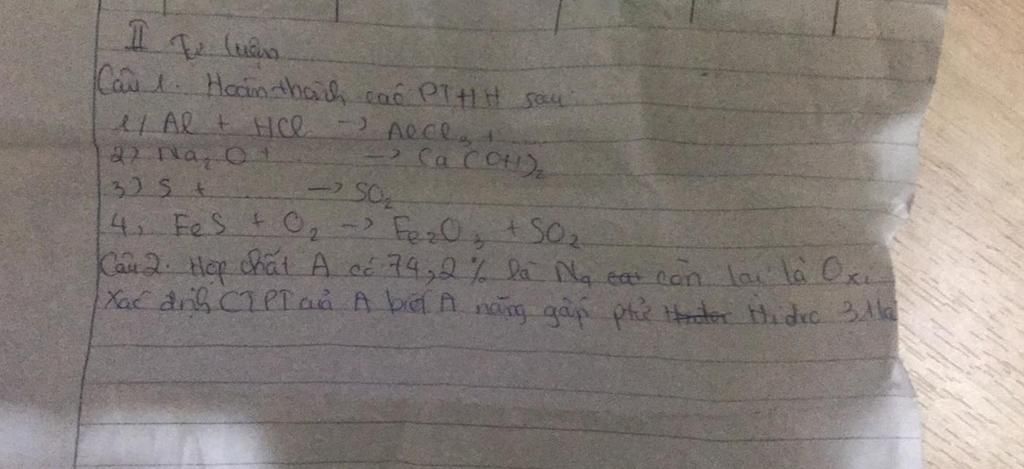 II Tự luận
Câu 1. Hoàn thành các PTHH sau
1) Al + HCl -> AlCl3 +
2) Na2O + -> Ca(OH)2
3) S + -> SO2
4, FeS + O2 -> Fe2O3 + SO2
Câu 2. Hợp chất A có 74,2% là Na còn lại là Oxi
Xác định CTPT của A biết A nặng gấp phử Hidro 31 lần